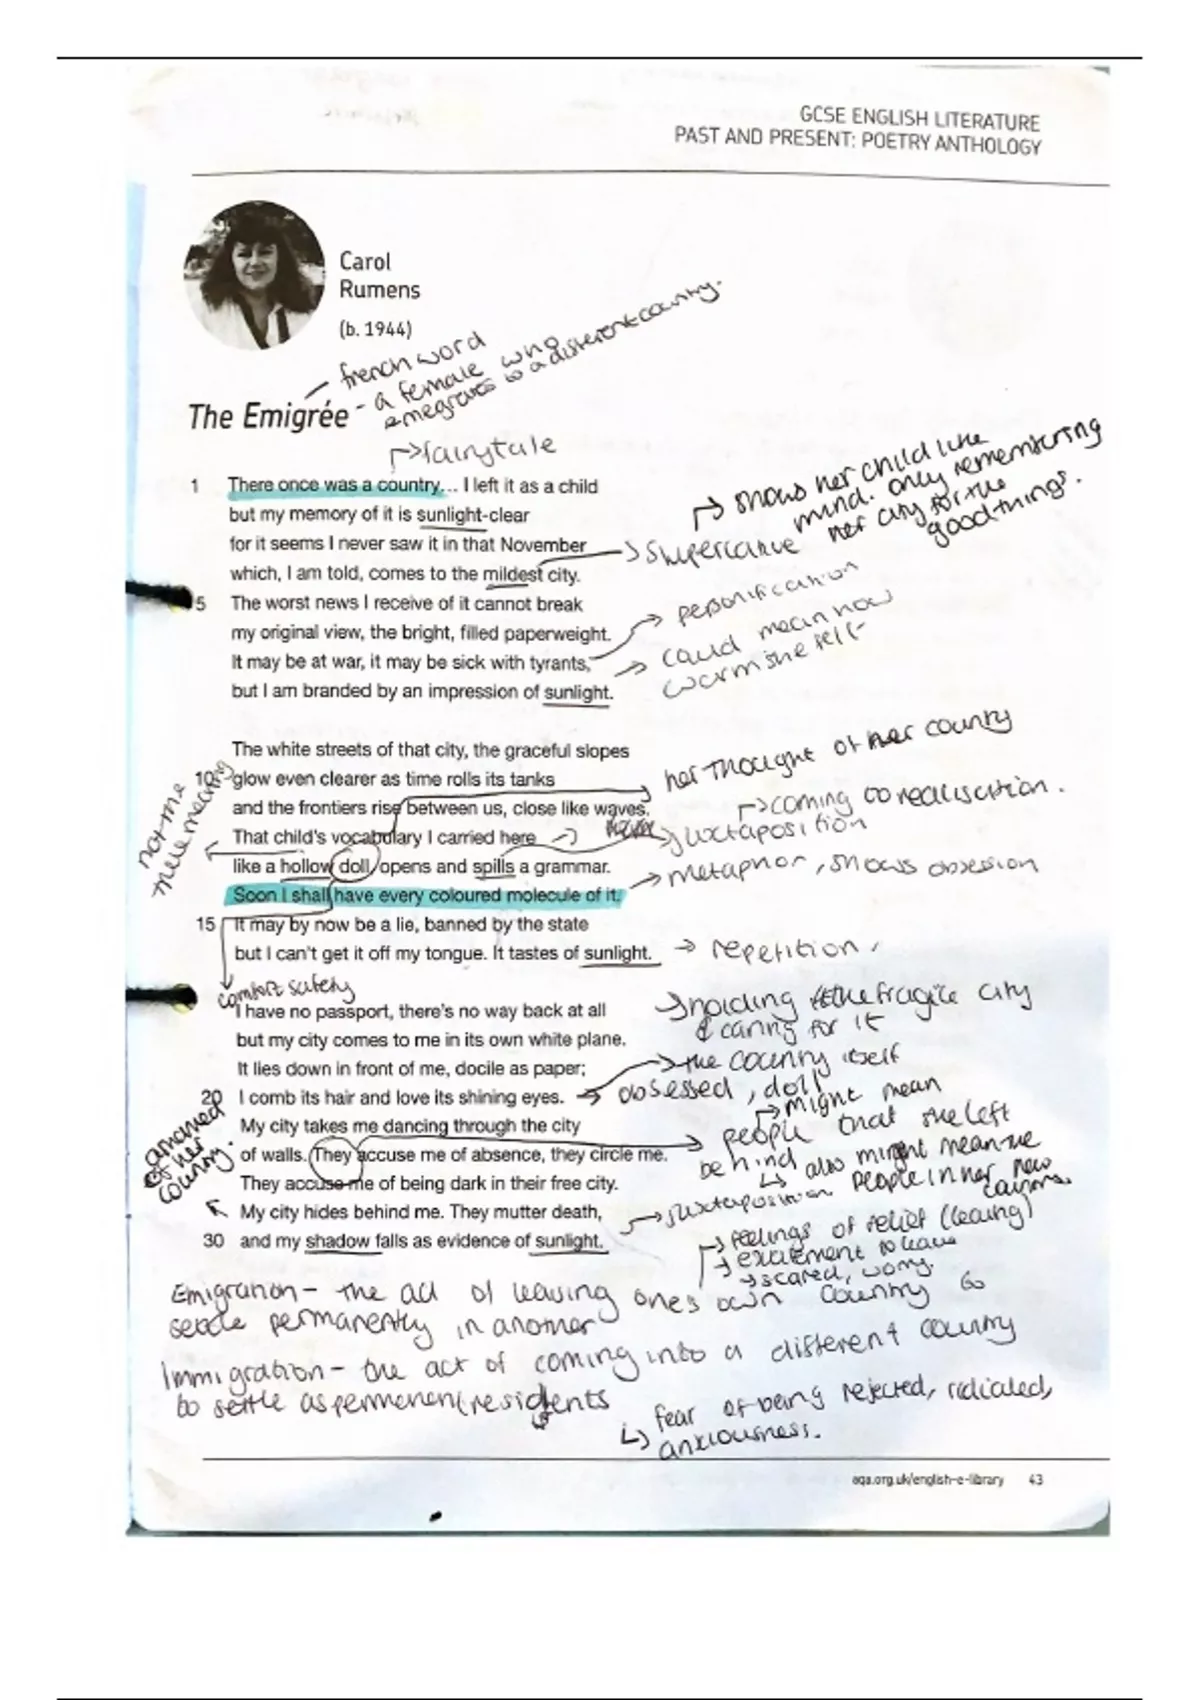 GCSE ENGLISH LITERATURE
PAST AND PRESENT: POETRY ANTHOLOGY
Carol
Rumens
(b. 1944)
french word
- a female who
emegrates to a different country.
The Emigrée
fairytale
1 There once was a country... I left it as a child
but my memory of it is sunlight-clear
for it seems I never saw it in that November
which, I am told, comes to the mildest city.
5 The worst news I receive of it cannot break
my original view, the bright, filled paperweight.
It may be at war, it may be sick with tyrants,
but I am branded by an impression of sunlight.
shows her child like
mind. only remembering
her city for the
good things.
superlative
personification
could mean how
warm she felt
The white streets of that city, the graceful slopes
10 glow even clearer as time rolls its tanks
and the frontiers rise between us, close like waves.
That child's vocabulary I carried here
like a hollow doll, opens and spills a grammar.
Soon I shall have every coloured molecule of it.
15 It may by now be a lie, banned by the state
but I can't get it off my tongue. It tastes of sunlight.
her thought of her country
coming to realisation.
juxtaposition
metaphor, shows obsession
repetition
comfort safety
I have no passport, there's no way back at all
but my city comes to me in its own white plane.
It lies down in front of me, docile as paper;
20 I comb its hair and love its shining eyes.
My city takes me dancing through the city
of walls. They accuse me of absence, they circle me.
They accuse me of being dark in their free city.
My city hides behind me. They mutter death,
30 and my shadow falls as evidence of sunlight.
holding the fragile city
& caring for it
the country itself
obsessed, doll
might mean
people that she left
behind
also might mean the
people in her new
juxtaposition
ashamed
of her
country.
feelings of relief (leaving)
excitement to leave
scared, worry.
Emigration - the act of leaving ones own country to
settle permanently in another
Immigration - the act of coming into a different country
to settle as permanent residents
fear of being rejected, ridiculed,
anxiousness.
aqa.org.uk/english-e-library 43